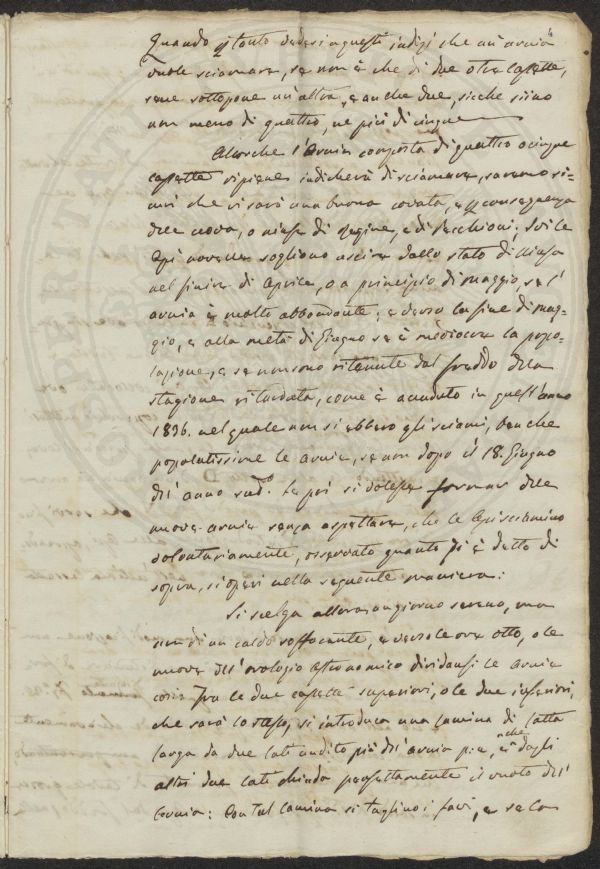 4
Quando intanto vedesi a questi indizi che un'arnia
vuole sciamare, se non è che di due o tre cassette,
se ne sottopone un'altra, e anche due, sicche siino
non meno di quattro, ne più di cinque
Allorche l'Arnia composta di quattro o cinque
cassette ripiene indicherà di sciamare, saremo si=
curi che vi sarà una buona covata, e conseguenza
delle uova, o ninfe di Regine, e di Pecchioni: Se le
Api novelle sogliono uscire dallo stato di Ninfa
nel finire di Aprile, o a principio di maggio, se l'
arnia è molto abbondante; e verso la fine di mag=
gio, e alla metà di Giugno se è mediocre la popo=
lazione, e se non sono ritenute dal freddo della
stagione ritardata, come è accaduto in quest'anno
1836. nel quale non si ebbero gli sciami, benche
popolatissime le arnie, se non dopo il 18. Giugno
dell'anno sud.o Se poi si volesse formar delle
nuove arnie senza aspettare, che le Api sciamino
volontariamente, osservato quanto si è detto di
sopra, si operi nella seguente maniera:
Si scelga allora un giorno sereno, ma
non di un caldo soffocante, e verso le ore otto, o le
nuove dell'orologio Astronomico dividansi le arnie
così: Fra le due cassette superiori, o le due inferiori,
che sarà lo stesso, si introduca una lamina di latta
larga da due lati un dito più dell'arnia che dagli
altri due lati chiuda perfettamente il vuoto dell'
Arnia: Con tal lamina si taglino i favi, e se la